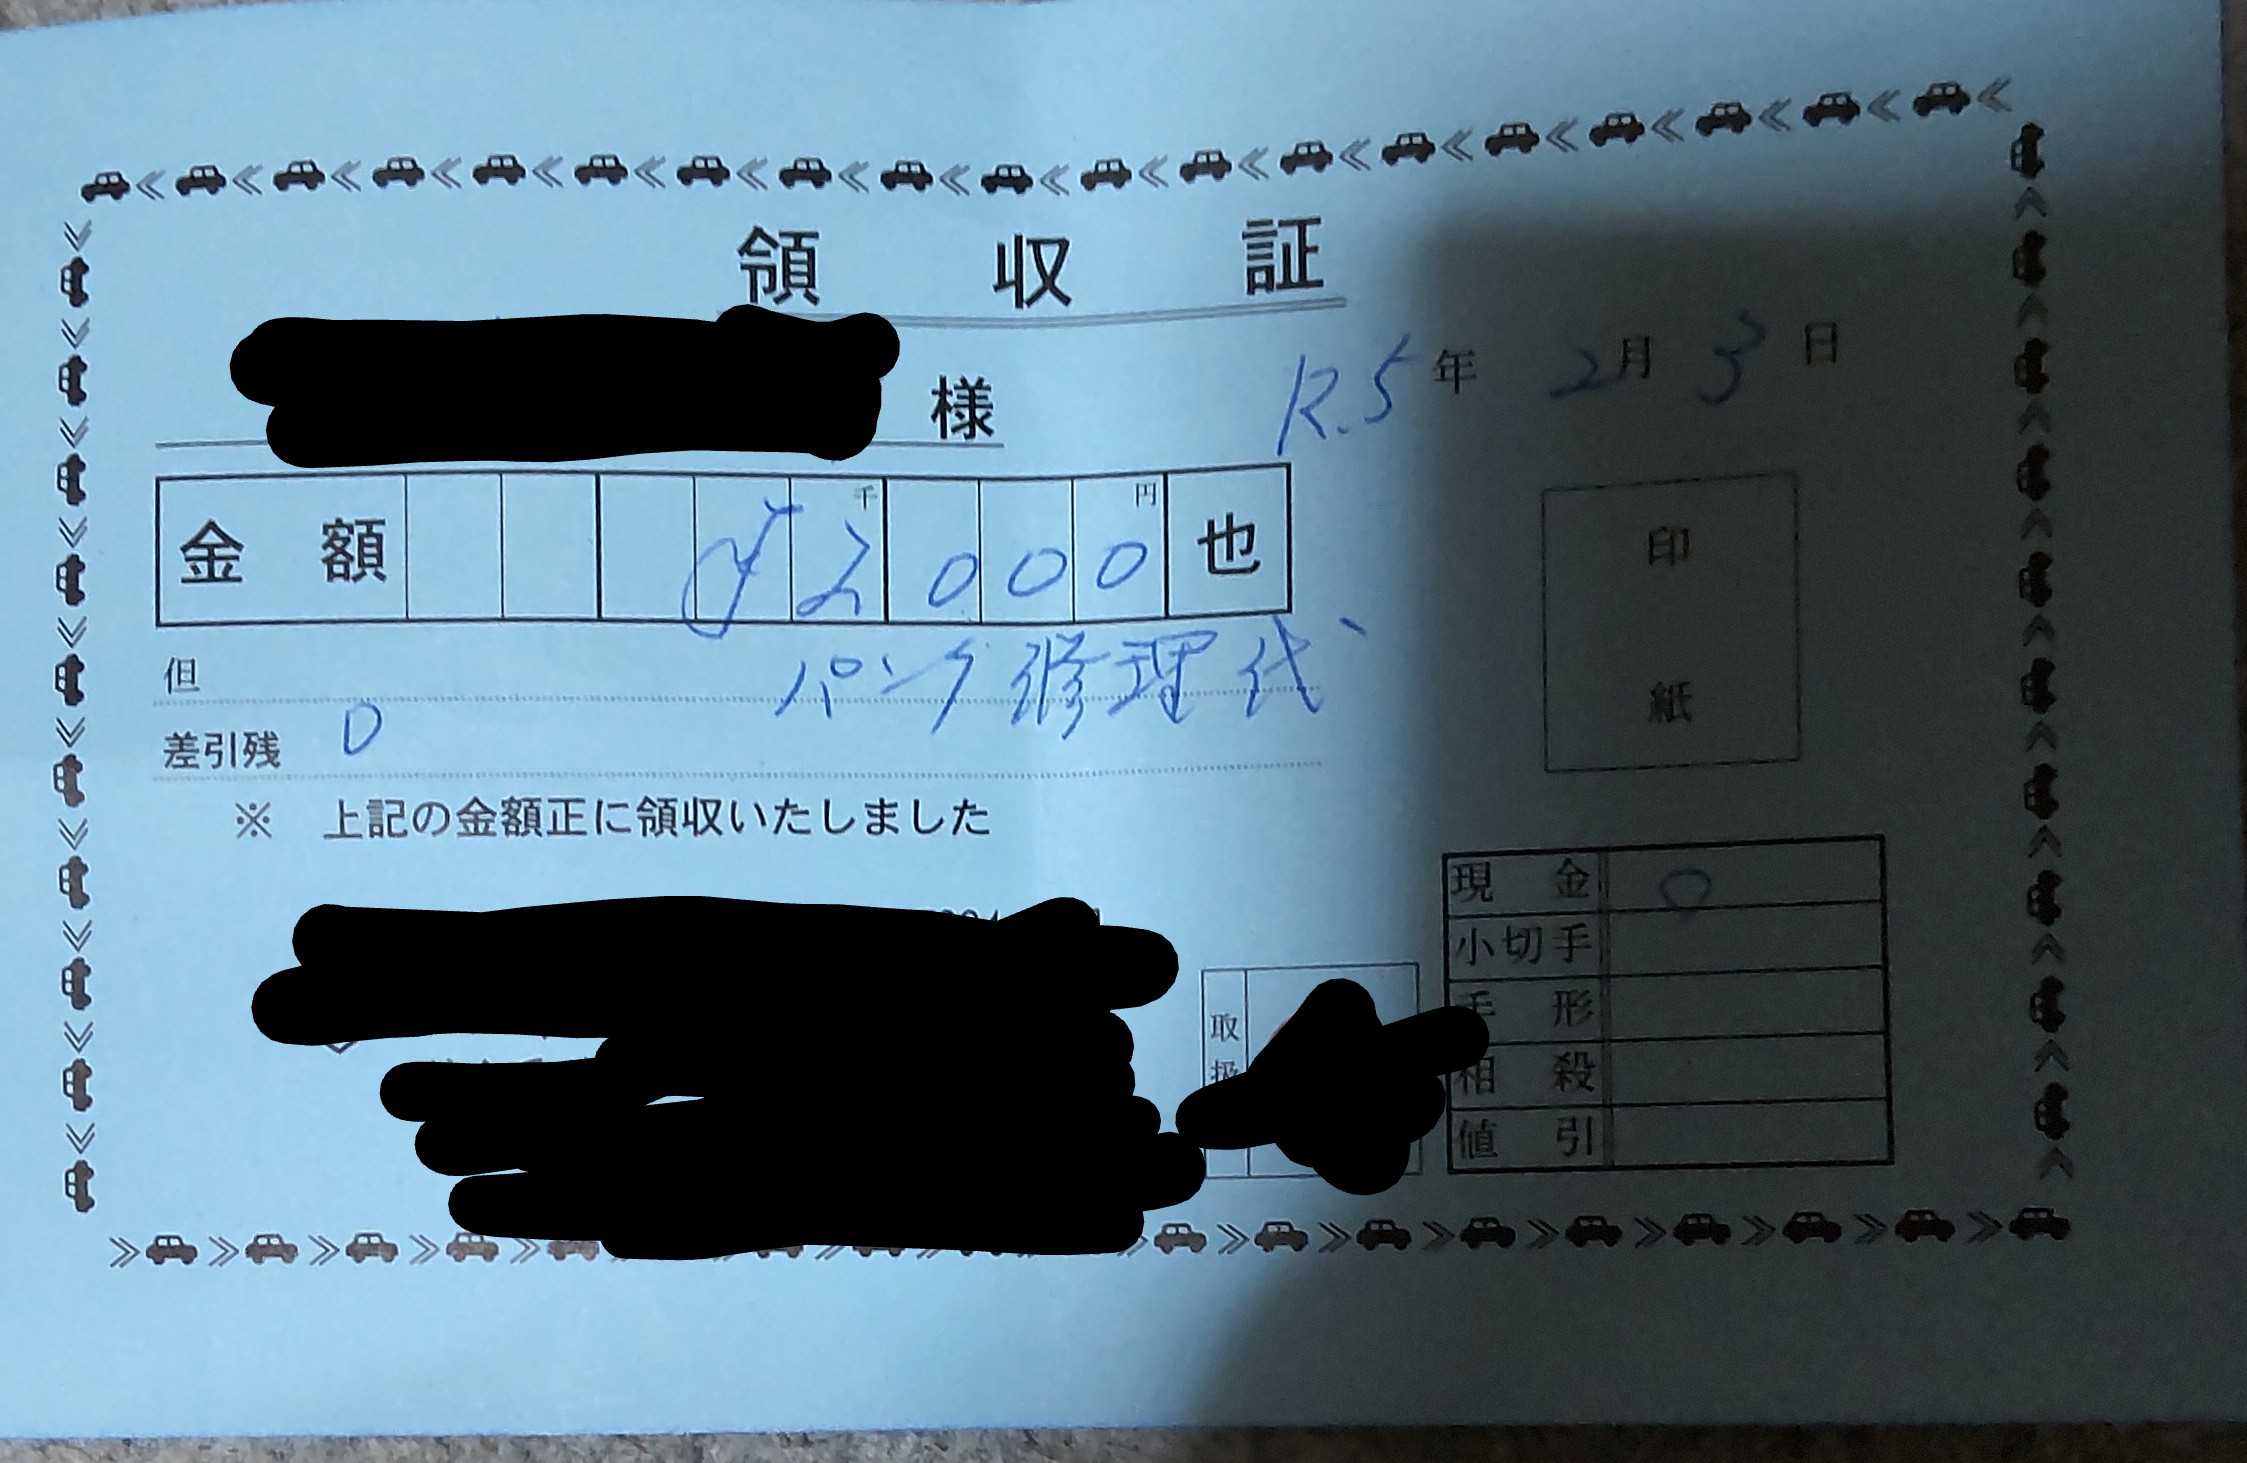 領収証
様
R.5年 2月 3日
金額 ¥2000 千 円 也
但 パンク修理代、
差引残 0
※ 上記の金額正に領収いたしました
印紙
取扱
現金 0
小切手
手形
相殺
値引